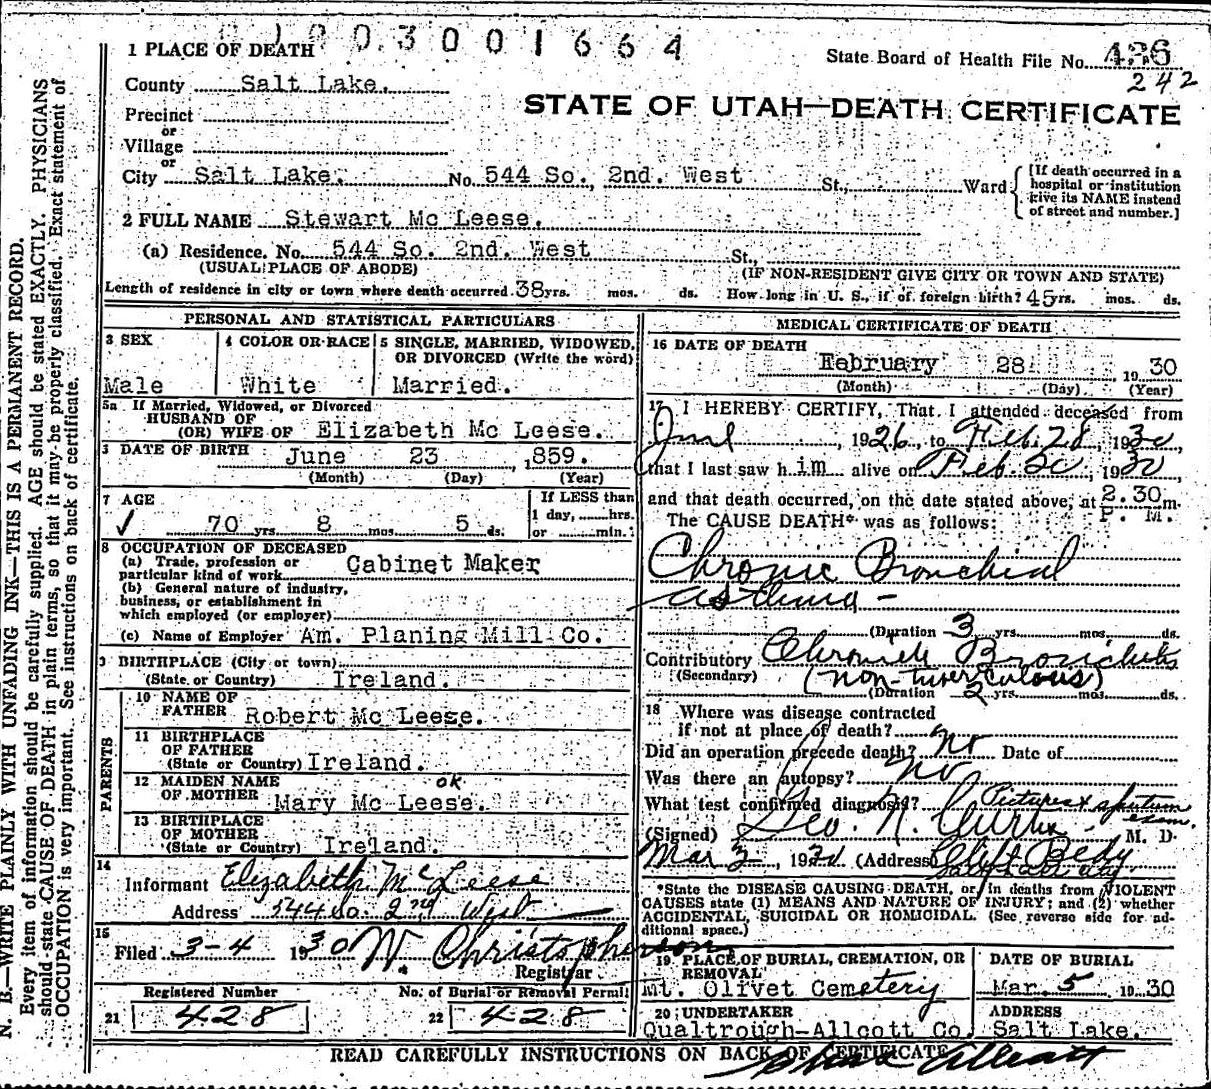 1 PLACE OF DEATH
0 3 0 0 1 6 6 4
State Board of Health File No. 436
242
County Salt Lake.
STATE OF UTAH—DEATH CERTIFICATE
Precinct
or
Village
or
City Salt Lake. No. 544 So. 2nd. West St., Ward
[If death occurred in a
hospital or institution
give its NAME instead
of street and number.]
2 FULL NAME Stewart Mc Leese.
(a) Residence. No. 544 So. 2nd. West St.,
(USUAL PLACE OF ABODE) (IF NON-RESIDENT GIVE CITY OR TOWN AND STATE)
Length of residence in city or town where death occurred. 38 yrs. mos. ds. How long in U. S., if of foreign birth? 45 yrs. mos. ds.
PERSONAL AND STATISTICAL PARTICULARS
3 SEX
Male
4 COLOR OR RACE
White
5 SINGLE, MARRIED, WIDOWED,
OR DIVORCED (Write the word)
Married.
5a If Married, Widowed, or Divorced
HUSBAND OF
(OR) WIFE OF Elizabeth Mc Leese.
DATE OF BIRTH June 23 , 1859.
(Month) (Day) (Year)
7 AGE
70 yrs. 8 mos. 5 ds.
If LESS than
1 day, hrs.
or min.
8 OCCUPATION OF DECEASED
(a) Trade, profession or
particular kind of work Cabinet Maker
(b) General nature of industry,
business, or establishment in
which employed (or employer)
(c) Name of Employer Am. Planing Mill Co.
9 BIRTHPLACE (City or town)
(State or Country) Ireland.
PARENTS
10 NAME OF
FATHER Robert Mc Leese.
11 BIRTHPLACE
OF FATHER
(State or Country) Ireland.
12 MAIDEN NAME OK
OF MOTHER Mary Mc Leese.
13 BIRTHPLACE
OF MOTHER
(State or Country) Ireland.
14
Informant Elizabeth McLeese
Address 544 So. 2nd West
15
Filed 3-4 1930 W. Christopherson
Registrar
Registered Number No. of Burial or Removal Permit
21 428 22 428
MEDICAL CERTIFICATE OF DEATH
16 DATE OF DEATH
February 28 , 1930
(Month) (Day) (Year)
17 I HEREBY CERTIFY, That I attended deceased from
, 1926, to Feb. 28, 1930
that I last saw him alive on Feb. 20, 1930
and that death occurred, on the date stated above, at 2.30 m.
P. M.
The CAUSE DEATH* was as follows:
Chronic Bronchial
asthma -
(Duration 3 yrs. mos. ds.
Contributory Chronic Bronchitis
(Secondary) (non-tuberculous)
(Duration 2 yrs. mos. ds.
18 Where was disease contracted
if not at place of death?
Did an operation precede death? no Date of
Was there an autopsy? no
What test confirmed diagnosis? Pictures & sputum
exam.
(Signed) Geo. N. Curtis M. D.
Mar 3, 1930 (Address) Clift Bldg
Salt Lake City
*State the DISEASE CAUSING DEATH, or, in deaths from VIOLENT
CAUSES state (1) MEANS AND NATURE OF INJURY; and (2) whether
ACCIDENTAL, SUICIDAL OR HOMICIDAL. (See reverse side for ad-
ditional space.)
19 PLACE OF BURIAL, CREMATION, OR
REMOVAL
Mt. Olivet Cemetery
DATE OF BURIAL
Mar. 5 1930
20 UNDERTAKER
Qualtrough-Allcott Co.
ADDRESS
Salt Lake.
READ CAREFULLY INSTRUCTIONS ON BACK OF CERTIFICATE
Allcott
N. B.—WRITE PLAINLY WITH UNFADING INK—THIS IS A PERMANENT RECORD.
Every item of information should be carefully supplied. AGE should be stated EXACTLY. PHYSICIANS
should state CAUSE OF DEATH in plain terms, so that it may be properly classified. Exact statement of
OCCUPATION is very important. See instructions on back of certificate.